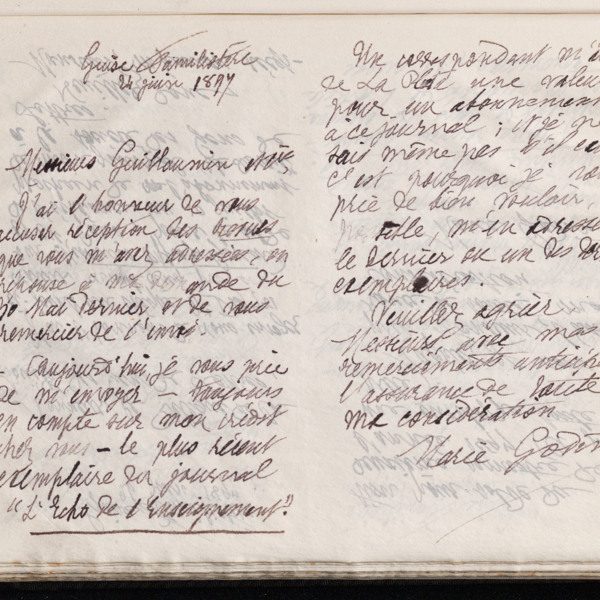 Guise Familistère
24 juin 1897
Messieurs Guillaumin et Cie,
J'ai l'honneur de vous
accuser réception des brochures
que vous m'avez adressées, en
réponse à ma demande du
30 Mai dernier et de vous
remercier de l'envoi.
- Aujourd'hui, je vous prie
de m'envoyer - toujours
en compte sur mon crédit
chez vous - le plus récent
exemplaire du journal
"L'Echo de l'Enseignement".
Un correspondant m'
de La Plata une valeur
pour un abonnement
à ce journal ; et je ne
sais même pas s'il
C'est pourquoi je vous
prie de bien vouloir,
m'en adresser
le dernier ou un des
exemplaires.
Veuillez agréer
Messieurs avec mes
remerciements
l'assurance de toute
ma considération
Marie Godin